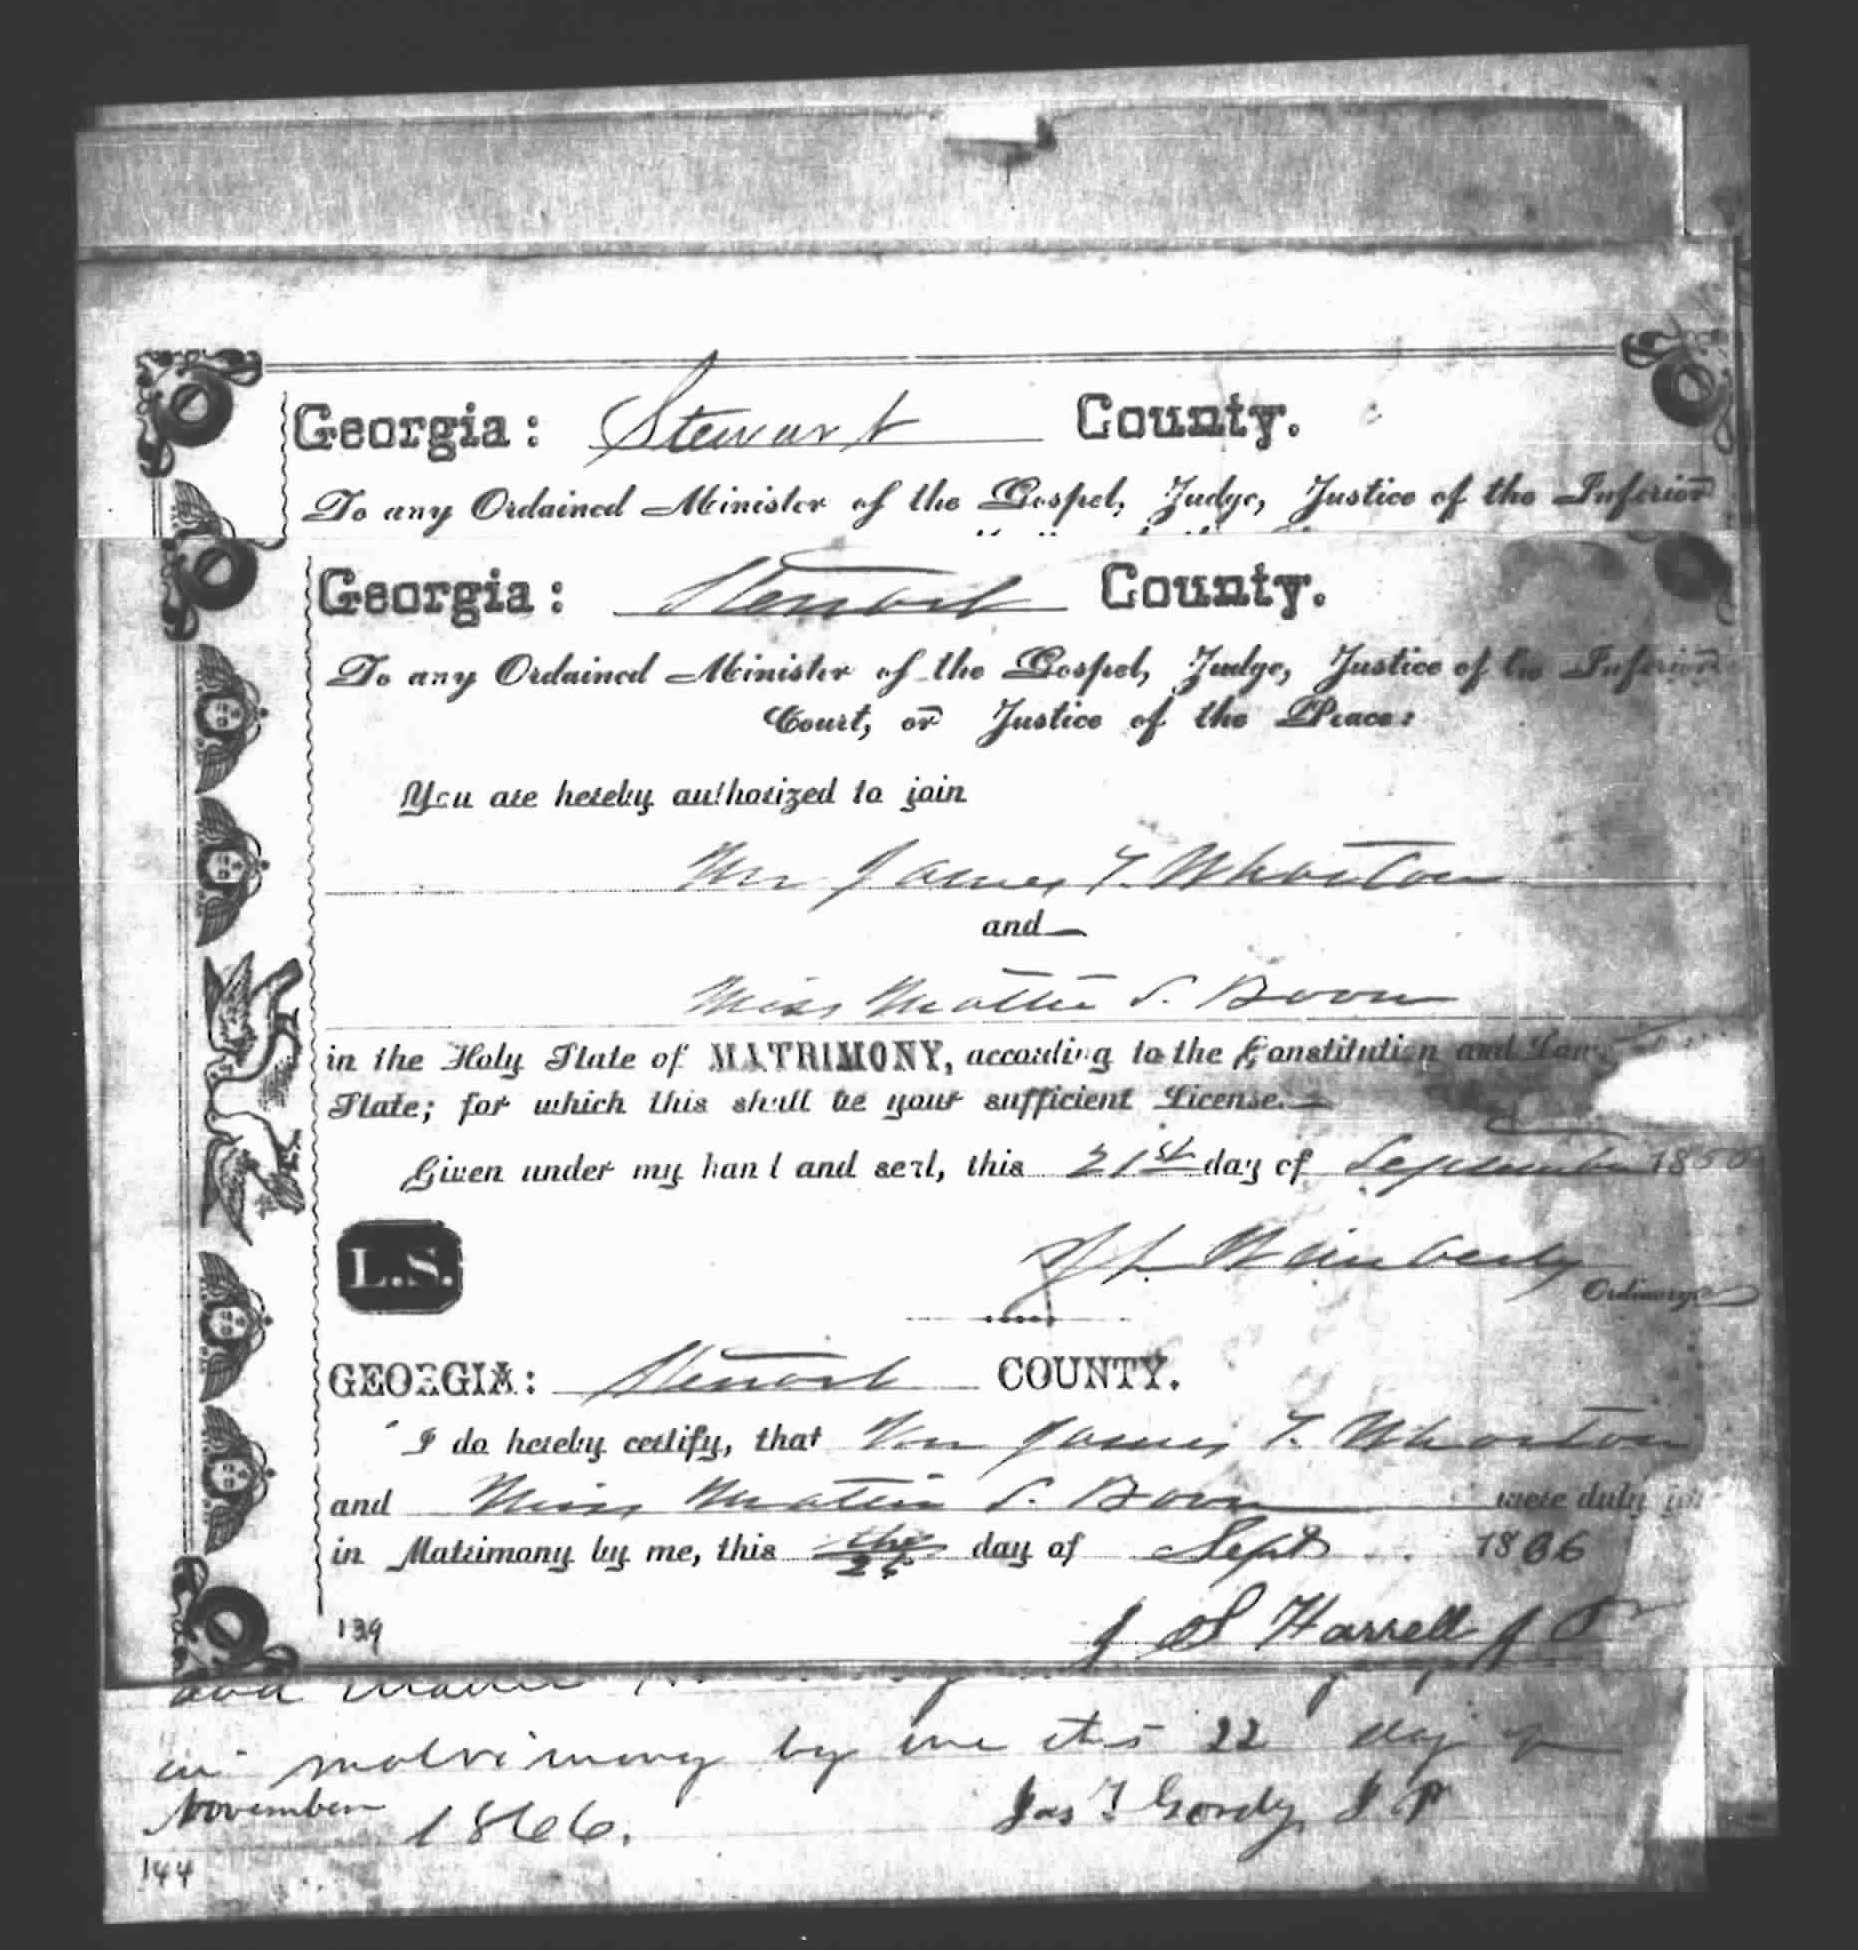 Georgia: Stewart County.
To any Ordained Minister of the Gospel, Judge, Justice of the Inferior
Georgia: Stewart County.
To any Ordained Minister of the Gospel, Judge, Justice of the Inferior
Court, or Justice of the Peace:
You are hereby authorized to join
Mr James T. Whorton
and
Miss Mattie S. Boon
in the Holy State of MATRIMONY, according to the Constitution and Laws
State; for which this shall be your sufficient License.
Given under my hand and seal, this 21st day of September 18
L.S.
J L Wimberly
Ordinary
GEORGIA: Stewart COUNTY.
I do hereby certify, that Mr James T. Whorton
and Miss Mattie S. Boon were duly
in Matrimony by me, this the day of Sept 1866
139
J S Harrell J P
and
in matrimony by me this 22 day of
November 1866.
Jas T Gordy J P
144